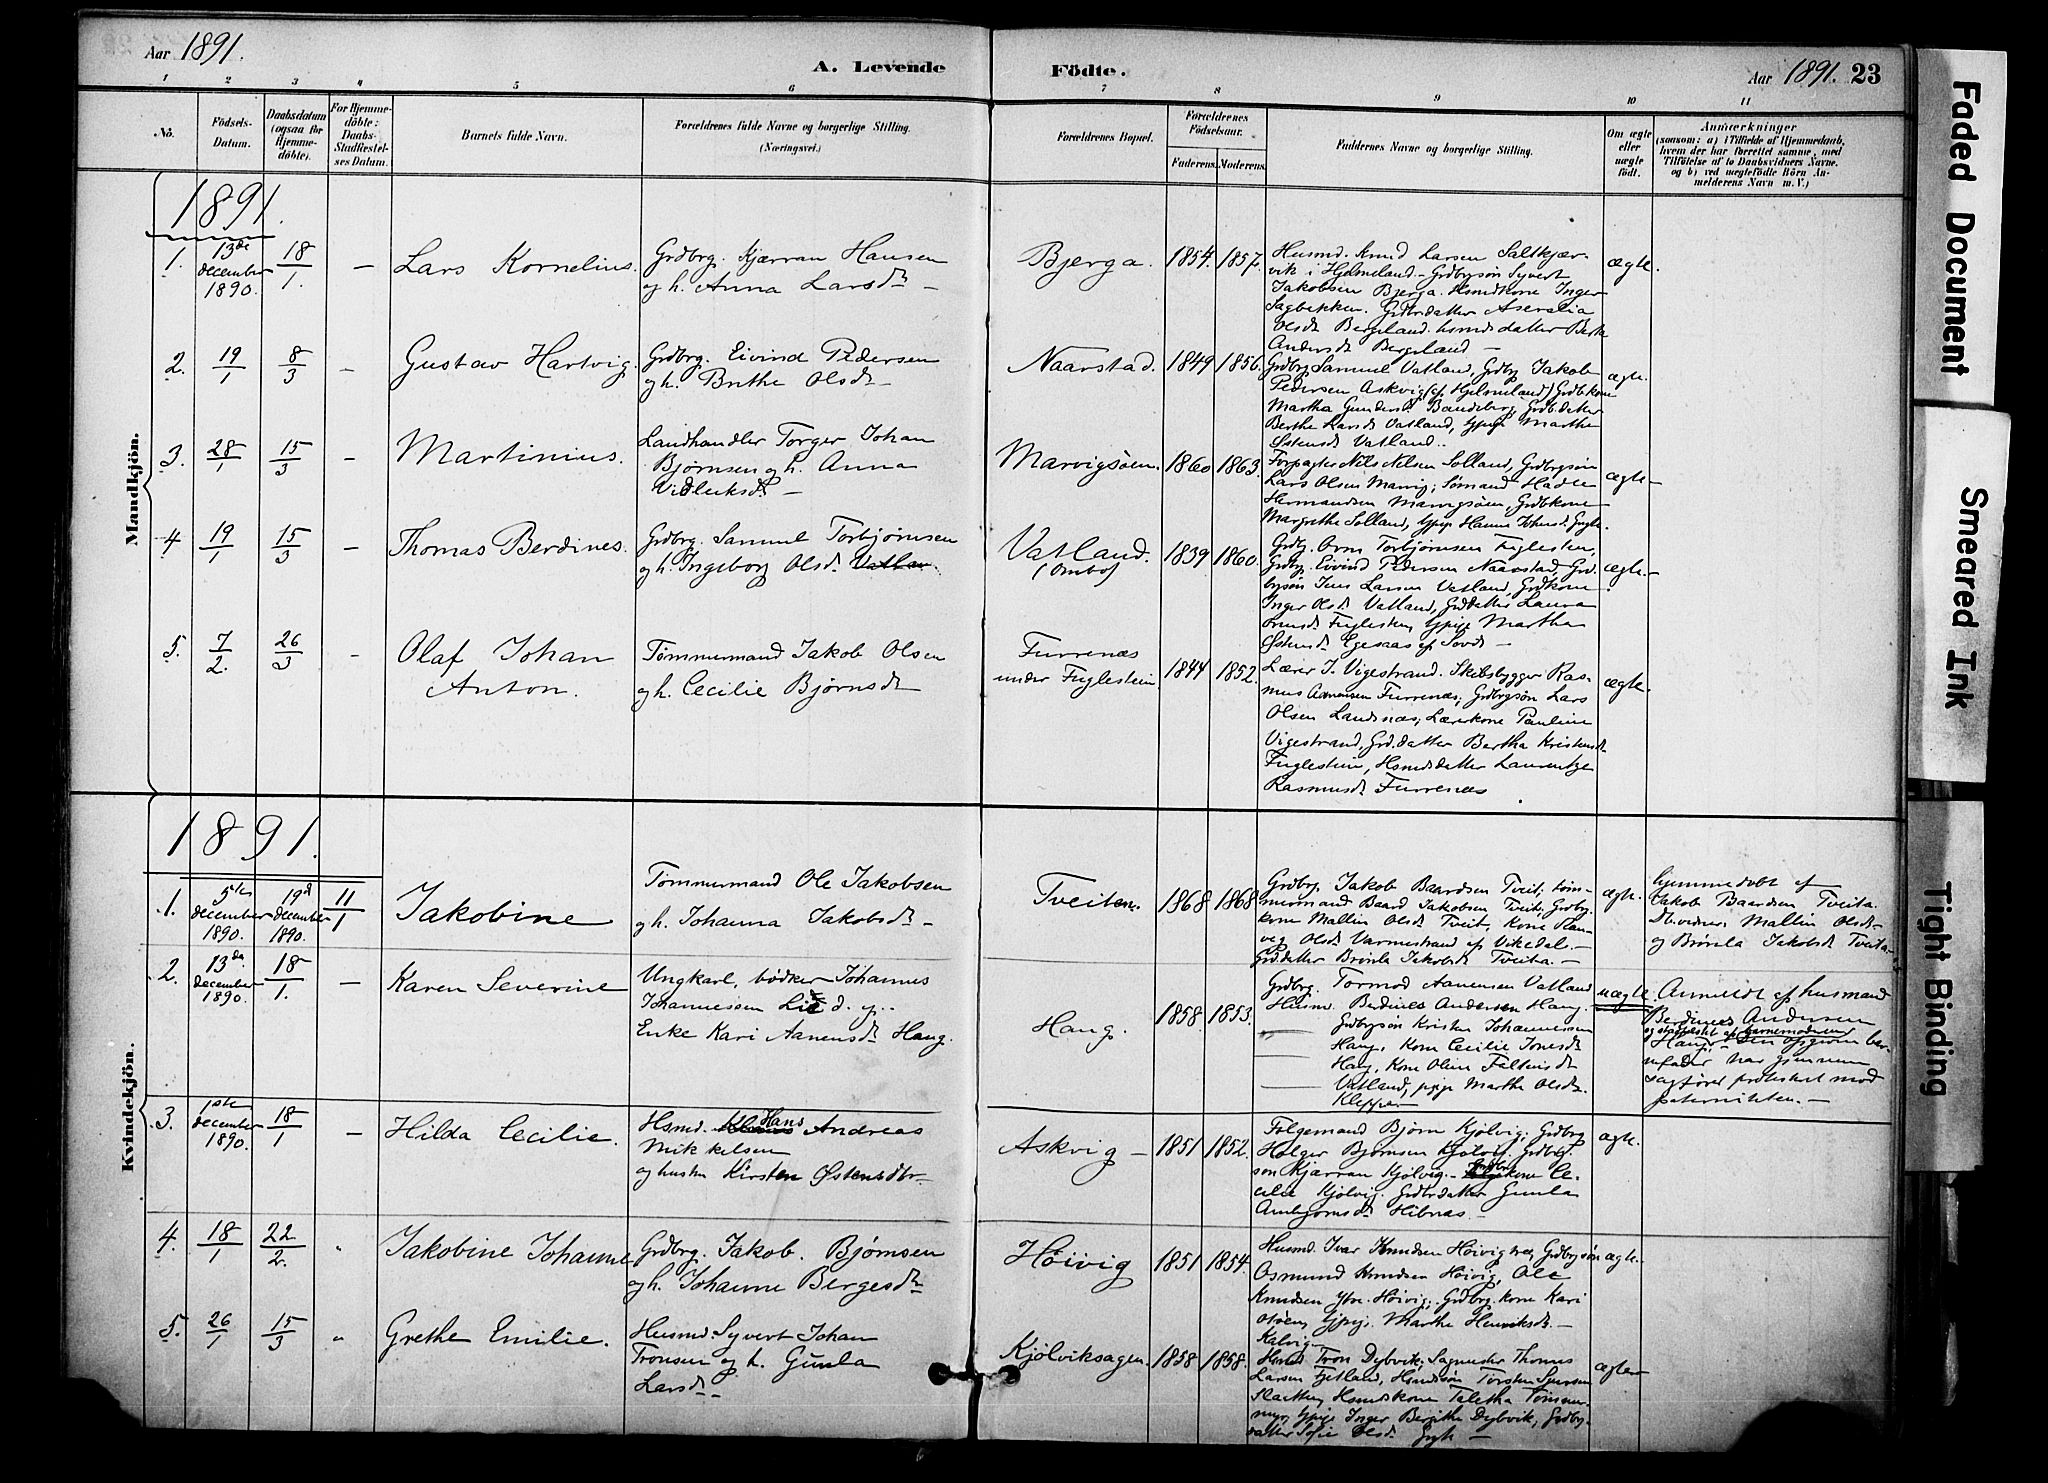 Aar 1891.
A. Levende
Födte.
Aar 1891. 23
1 2 3 4 5 6 7 8 9 10 11
No.
Födsels-
Datum.
Daabsdatum
(ogsaa for
Hjemme-
döbte).
For Hjemme-
döbte:
Daabs-
Stadfæstel-
ses Datum.
Barnets fulde Navn.
Forældrenes fulde Navne og borgerlige Stilling.
(Næringsvei.)
Forældrenes Bopæl.
Forældrenes
Födselsaar.
Faderens. Moderens.
Faddernes Navne og borgerlige Stilling.
Om ægte
eller
uægte
födt.
Anmærkninger
(saasom: a) i Tilfælde af Hjemmedaab,
hvem der har forrettet samme, med
Tilföielse af to Daabsvidners Navne,
og b) ved uægtefödte Börn An-
melderens Navn m. V.)
Mandkjön.
1891.
1.
13de
december
1890.
18/1.
—
Lars Kornelius.
Grdbrg. Kjærran Hansen
og h. Anna Larsdr —
Bjerga.
1854. 1857.
Husmd. Knud Larsen Saltkjær-
vik i Hjelmeland. Grdbrgsøn Syvert
Jakobsen Bjerga. Hsmdkone Inger
Sagbekken. Grdbrdatter Aseralia
Olsdr Bergland. husmdsdatter Berthe
Andersdr Bergeland —
ægte.
2.
19/1
8/3
—
Gustav Hartvig.
Grdbrg. Eivind Pedersen
og h. Brithe Olsdr —
Naarstad.
1849 1856.
Grdbrg Samuel Vatland, Grdbrg Jakob
Pedersen Askvig (af Hjelmeland) Grdbkone
Martha Gundersdr Bandeberg, Grdb.datter
Berthe Larsdr Vatland, ypige Marthe
Østensdr Vatland.
ægte.
3.
28/1
15/3
—
Martinius.
Landhandler Torger Johan
Bjørnsen og h. Anna
Vidleiksdr —
Marvigsøen.
1860 1863.
Forpagter Nils Nilsen Solland, Grdbrgsøn
Lars Olsen Marvig; Sømand Hadle
Hermandsen Marvigsøen, Grdbkone
Margrethe Solland, ypige Hanna Johnsdr
ægte —
4
19/1
15/3
—
Thomas Berdines.
Grdbrg. Samuel Torbjørnsen
og h. Ingeborg Olsdr Vatlan
Vatland.
(Ombo)
1839 1860.
Grdbg. Orm Torbjørnsen Fuglesten,
Grdbg. Eivind Pedersen Naarstad, Grd-
bgsøn Jens Larsen Vatland, Grdkone
Inger Olsdr Vatland, Grddatter Laura
Ormsdr Fuglesten, ypige Martha
Østensdr Egesaas af Sovde —
ægte.
5.
7/2.
26/3
—
Olaf Johan
Anton.
Tømmermand Jakob Olsen
og h. Cecilie Bjørnsdr
Furrenæs
under Fuglestein.
1844 1852.
Lærer J. Vigestrand. Skibsbygger Ras-
mus Asmonsen Furrenæs; Grdbrgsøn Lars
Olsen Landsnæs; Lærerkone Pauline
Vigestrand, Grd.datter Bertha Kristensdr
Fuglestein, Hsmdsdatter Laurentze
Rasmusdr Furrenæs
ægte.
Kvindekjön.
1891.
1.
5te
december
1890.
19d
december
1890.
11/1
Jakobine
Tømmermand Ole Jakobsen
og h. Johanna Jakobsdr —
Tveiten.
1868 1868
Grdbrg. Jakob Baardsen Tveit; tøm-
mermand Baard Jakobsen Tveit; Grdbrg.
kone Mallin Olsdr Tveit, kone Ran-
veg Olsdr Varmestrand af Vikedal. —
Grd.datter Brønla Jakobsdr Tveita —
ægte.
hjemmedøbt af
Jakob Baardsen Tveita.
Dbvidner: Mallin Olsdr
og Brønla Jakobsdr Tveita
2.
13de
december
1890.
18/1.
—
Karen Severine
Ungkarl, bødker Johannes
Johannessen Lie d. y.
Enke Kari Aanensdr Haug.
Haug.
1858. 1853.
Grdbrg. Tormod Aanensen Vatland
Husmd. Berdines Andersen Haug.
Grdbrgsøn Kristen Johannessen
Haug, kone Cecilie Jonesdr
Haug, kone Oline Faltinsdr
Vatland, pige Marthe Olsdr
Kleppe —
uægte.
Anmeldt af husmand
Berdines Andersen
og stadfæstet af barnemoderens
Haug. — Den opgivne bar-
nefader har gjennem
sagfører protesteret mod
paterniteten. —
3.
1ste
december
1890.
18/1
—
Hilda Cecilie.
Hsmd. Hans Andreas
Mikkelsen
og hustru Kirsten Østensdtr —
Askvig —
1851 1852.
Folgemand Bjørn Kjølvig; Grdbrg
Holger Bjørnsen Kjølvig. Grdbrg-
søn Kjærran Kjølvig — kone Ce-
celie Kjølvig. Grdbrdatter Gunla
Hibnæs. —
ægte.
4.
18/1
22/2.
"
Jakobine Johanne
Grdbrg. Jakob. Bjørnsen
og h. Johanne Bergesdr
Høivig
1851 1854.
Husmd. Ivar Knudsen Høivig, Grdbrgsøn
Osmund Knudsen Høivig, Ole
Knudsen Ytre-Høivig. Grdbrg.kone Kari
ypige. Marthe Henriksdr —
Kalvig —
ægte.
5.
26/1
15/3
"
Grethe Emilie.
Husmd. Syvert Johan
Tronsen og h. Gunla
Larsdr —
Kjølviksagen.
1858 1858.
Hsmd Tron Dybvik, Sagmester Thomas
Larsen Fjetland, Hsmdsøn Torsten Syversen
Slaetten, Hsmdskone Taletha
ypige Inger Berithe Dybvik, Grdbr-
datter Sofie Olsdr —
ægte
Faded Document
Smeared Ink
Tight Binding